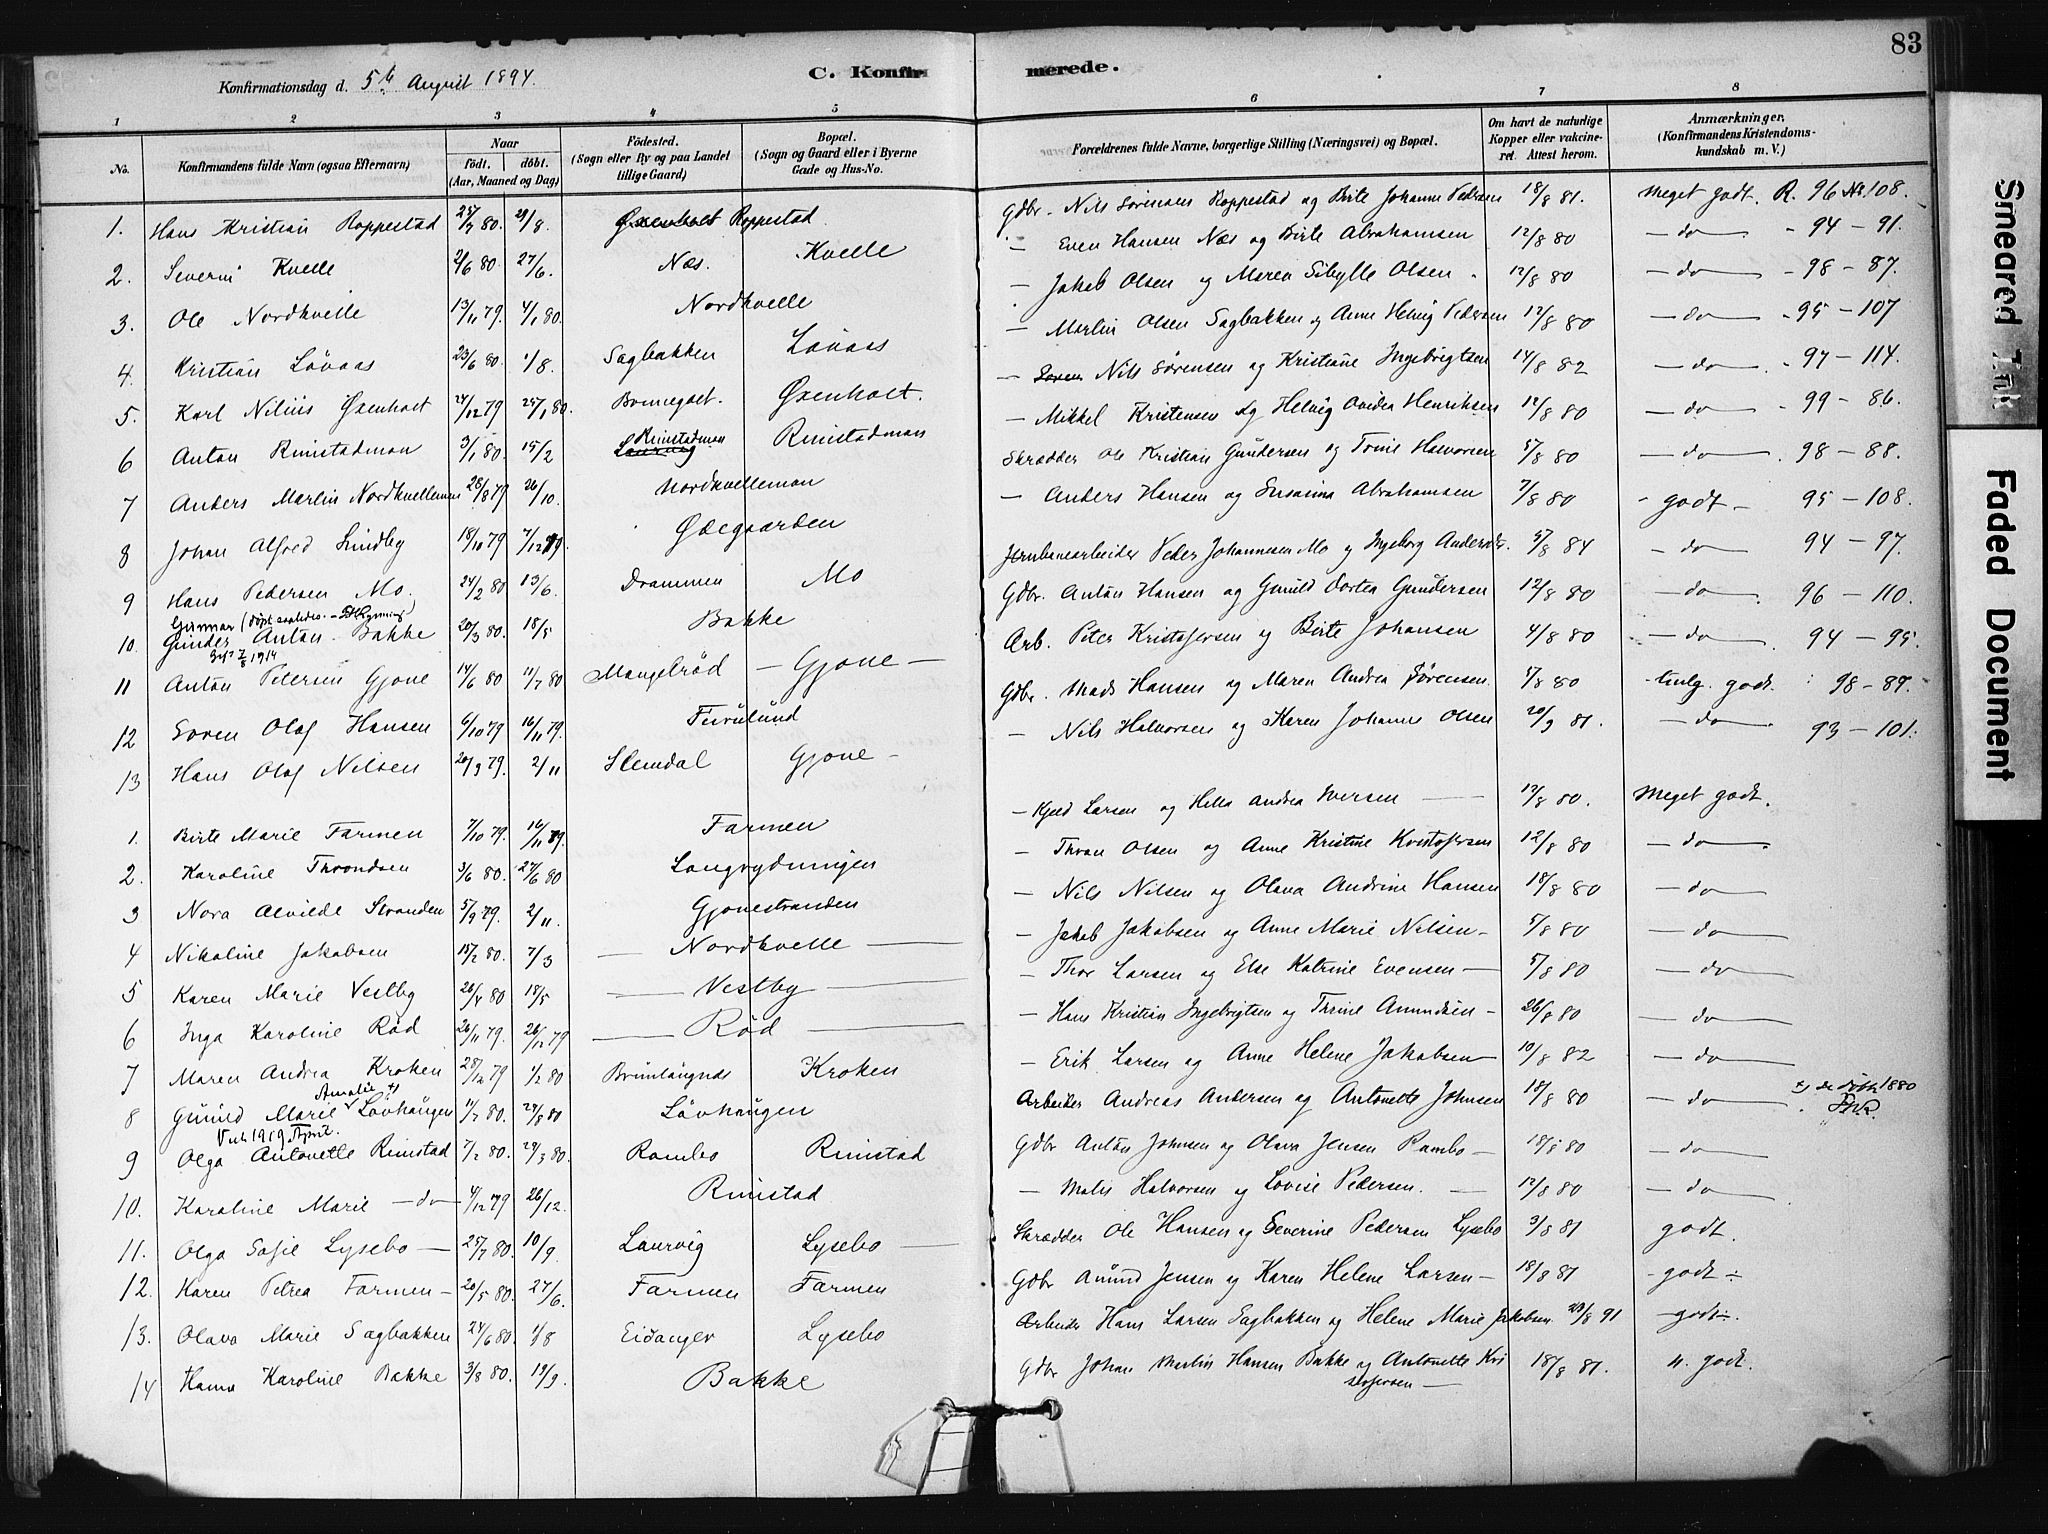 83
Konfirmationsdag d. 5te August 1894.
C. Konfirmerede.
1 2 3 4 5 6 7 8
No. Konfirmandens fulde Navn (ogsaa Efternavn) Naar født. døbt. (Aar, Maaned og Dag) Fødested. (Sogn eller By og paa Landet tillige Gaard) Bopæl. (Sogn og Gaard eller i Byerne Gade og Hus-No. Forældrenes fulde Navne, borgerlige Stilling (Næringsvei) og Bopæl. Om havt de naturlige Kopper eller vakcineret. Attest herom. Anmærkninger, (Konfirmandens Kristendomskundskab m. V.)
1. Hans Kristian Roppestad 25/7 80. 29/8. Øxenholt Roppestad Gdbr. Nils Sørensen Roppestad og Birte Johanne Pedersen 18/8 81. Meget godt. R. 96 No 108.
2. Severin Kvelle 2/6 80. 27/6. Næs. Kvelle — Even Hansen Næs og Birte Abrahamsen 12/8 80 — do — - 94 - 91.
3. Ole Nordkvelle 13/11 79. 4/1 80. Nordkvelle — Jakob Olsen og Maren Sibylle Olsen. 12/8 80 — do — - 98 - 87.
4. Kristian Løvaas 23/6 80. 1/8. Sagbakken Løvaas — Martin Olsen Sagbakken og Anne Helvig Pedersen 12/8 80 — do — - 95 - 107
5. Karl Nilius Øxenholt 24/12 79 25/1 80. Bonnegolt. Øxenholt. — Soren Nils Sørensen og Kristiane Ingebrigtsen 14/8 82 — do — - 97 - 114.
6 Anton Rimstadmoen 3/1 80. 15/2 Laurvig Rimstadmoen Rimstadmoen — Mikkel Kristensen og Helvig Ovidea Henriksen 12/8 80 — do — - 99 - 86.
7 Anders Martin Nordkvellemoen 28/8 79 26/10. Nordkvellemoen Skrædder Ole Kristian Gundersen og Trine Halvorsen 5/8 80 — do — . 98 - 88.
8 Johan Alfred Lindby 18/10 79 7/12 79. Ødegaarden — Anders Hansen og Susanna Abrahamsen 7/8 80 - godt - 95 - 108.
9 Hans Pedersen Mo. 24/2 80 13/6. Drammen Mo Jernbanearbeider Peder Johannesen Mo og Ingeborg Andersdr. 5/8 84 — do — 94 - 97.
Gunnar (døpt saaledes
10. Gunder Anton Bakke 20/3 80. 18/5 Bakke Gdbr. Anton Hansen og Gunild Dortea Gundersen 12/8 80 — do — . 96 - 110.
7/8 1914
11 Anton Petersen Gjone 14/6 80 11/7 80 Mangelrød — Gjone — Arb. Peter Kristofersen og Birte Johansen 4/8 80 — do — 94 - 95.
12 Soren Olaf Hansen 6/10 79 16/11 79. Furulund Gdbr. Mads Hansen og Maren Andrea Sørensen. 5/8 80 - tmlg. godt. 98 - 89.
13 Hans Olaf Nilsen 20/9 79. 2/11 Slemdal Gjone — — Nils Halvorsen og Karen Johanne Olsen 20/9 81. — do — 93 - 101.
1. Birte Marie Farmen 7/10 79. 16/11 79. Farmen — Kjeld Larsen og Hella Andrea Iversen — 12/8 80. Meget godt.
2. Karoline Throndsen 3/6 80. 27/6 80 Langrydningen — Thron Olsen og Anne Kristine Kristofersen 12/8 80 — do —
3 Nora Alvilde Stranden 5/9 79. 2/11. Gjonestranden — Nils Nilsen og Olava Andrine Hansen 18/8 80 — do —
4 Nikoline Jakobsen 15/2 80. 7/3 — Nordkvelle — — Jakob Jakobsen og Anne Marie Nilsen — 5/8 80 — do —
5 Karen Marie Vestby 26/4 80 18/5 — Vestby — — Thor Larsen og Else Katrine Evensen — 5/8 80 — do —
6 Inga Karoline Rød 26/11 79. 26/12 79 — Rød — — Hans Kristian Ingebrigtsen og Thrine Amundsen — 26/8 80 — do —
7 Maren Andrea Kroken 28/12 79 1/2 80 Brunlangnds Kroken — Erik Larsen og Anne Helene Jakobsen — 10/8 82 — do —
Amalie +)
8 Gunild Marie Løvhaugen 11/7 80. 29/8 80 Løvhaugen Arbeider Andreas Andersen og Antonette Johnsen 18/8 80 — do — +) se døbte 1880
Vub 1919 April.
9 Olga Antonette Rimstad 7/2 80. 29/3 80. Rambo Rimstad Gdbr Anton Johnsen og Olava Jensen Rambo — 18/8 80 — do —
10. Karoline Marie — do — 4/12 79 26/12. Rimstad — Matis Halvorsen og Lovise Pedersen. — 12/8 80 — do —
11. Olga Sofie Lysebo — 25/7 80. 10/9. Laurvig Lysebo — Skrædder Ole Hansen og Severine Pedersen Lysebo 3/8 81 godt.
12. Karen Petrea Farmen — 20/5 80. 27/6. Farmen Farmen Gdbr Amund Jensen og Karen Helene Larsen — 18/8 81 - godt -
13. Olava Marie Sagbakken 24/6 80. 1/8 Eidanger Lysebo Arbeider Hans Larsen Sagbakken og Helene Marie Jakobsen. 29/8 91 - godt -
14 Hanna Karoline Bakke 3/8 80. 19/9. Bakke Gdbr Johan Martin Hansen Bakke og Antonette Kristofersen — 18/8 81. n. godt.
Smeared Ink
Faded Document